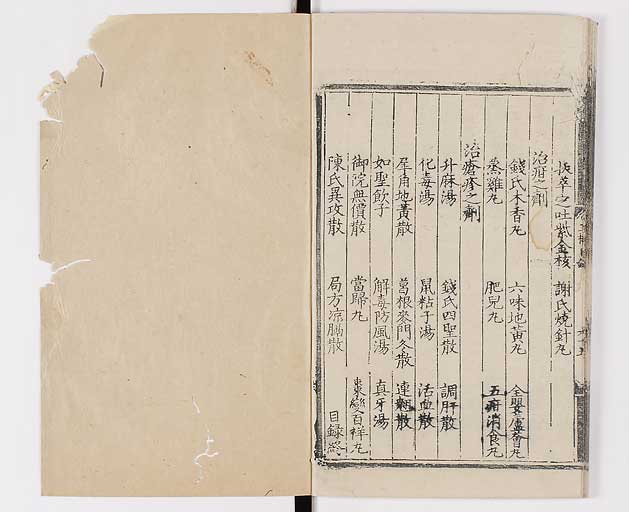 拔萃之吐紫金核 謝氏燒針丸
治疳之劑
錢氏木香丸 六味地黃丸 全嬰蘆薈丸
蒸雞丸 肥兒丸 五疳消食丸
治瘡疹之劑
升麻湯 錢氏四聖散 調肝散
化毒湯 鼠粘子湯 活血散
犀角地黃散 葛根麥門冬散 連翹散
如聖飲子 解毒防風湯 真牙湯
御院無價散 當歸丸 棗變百祥丸
陳氏異攻散 局方涼膈散 目錄終